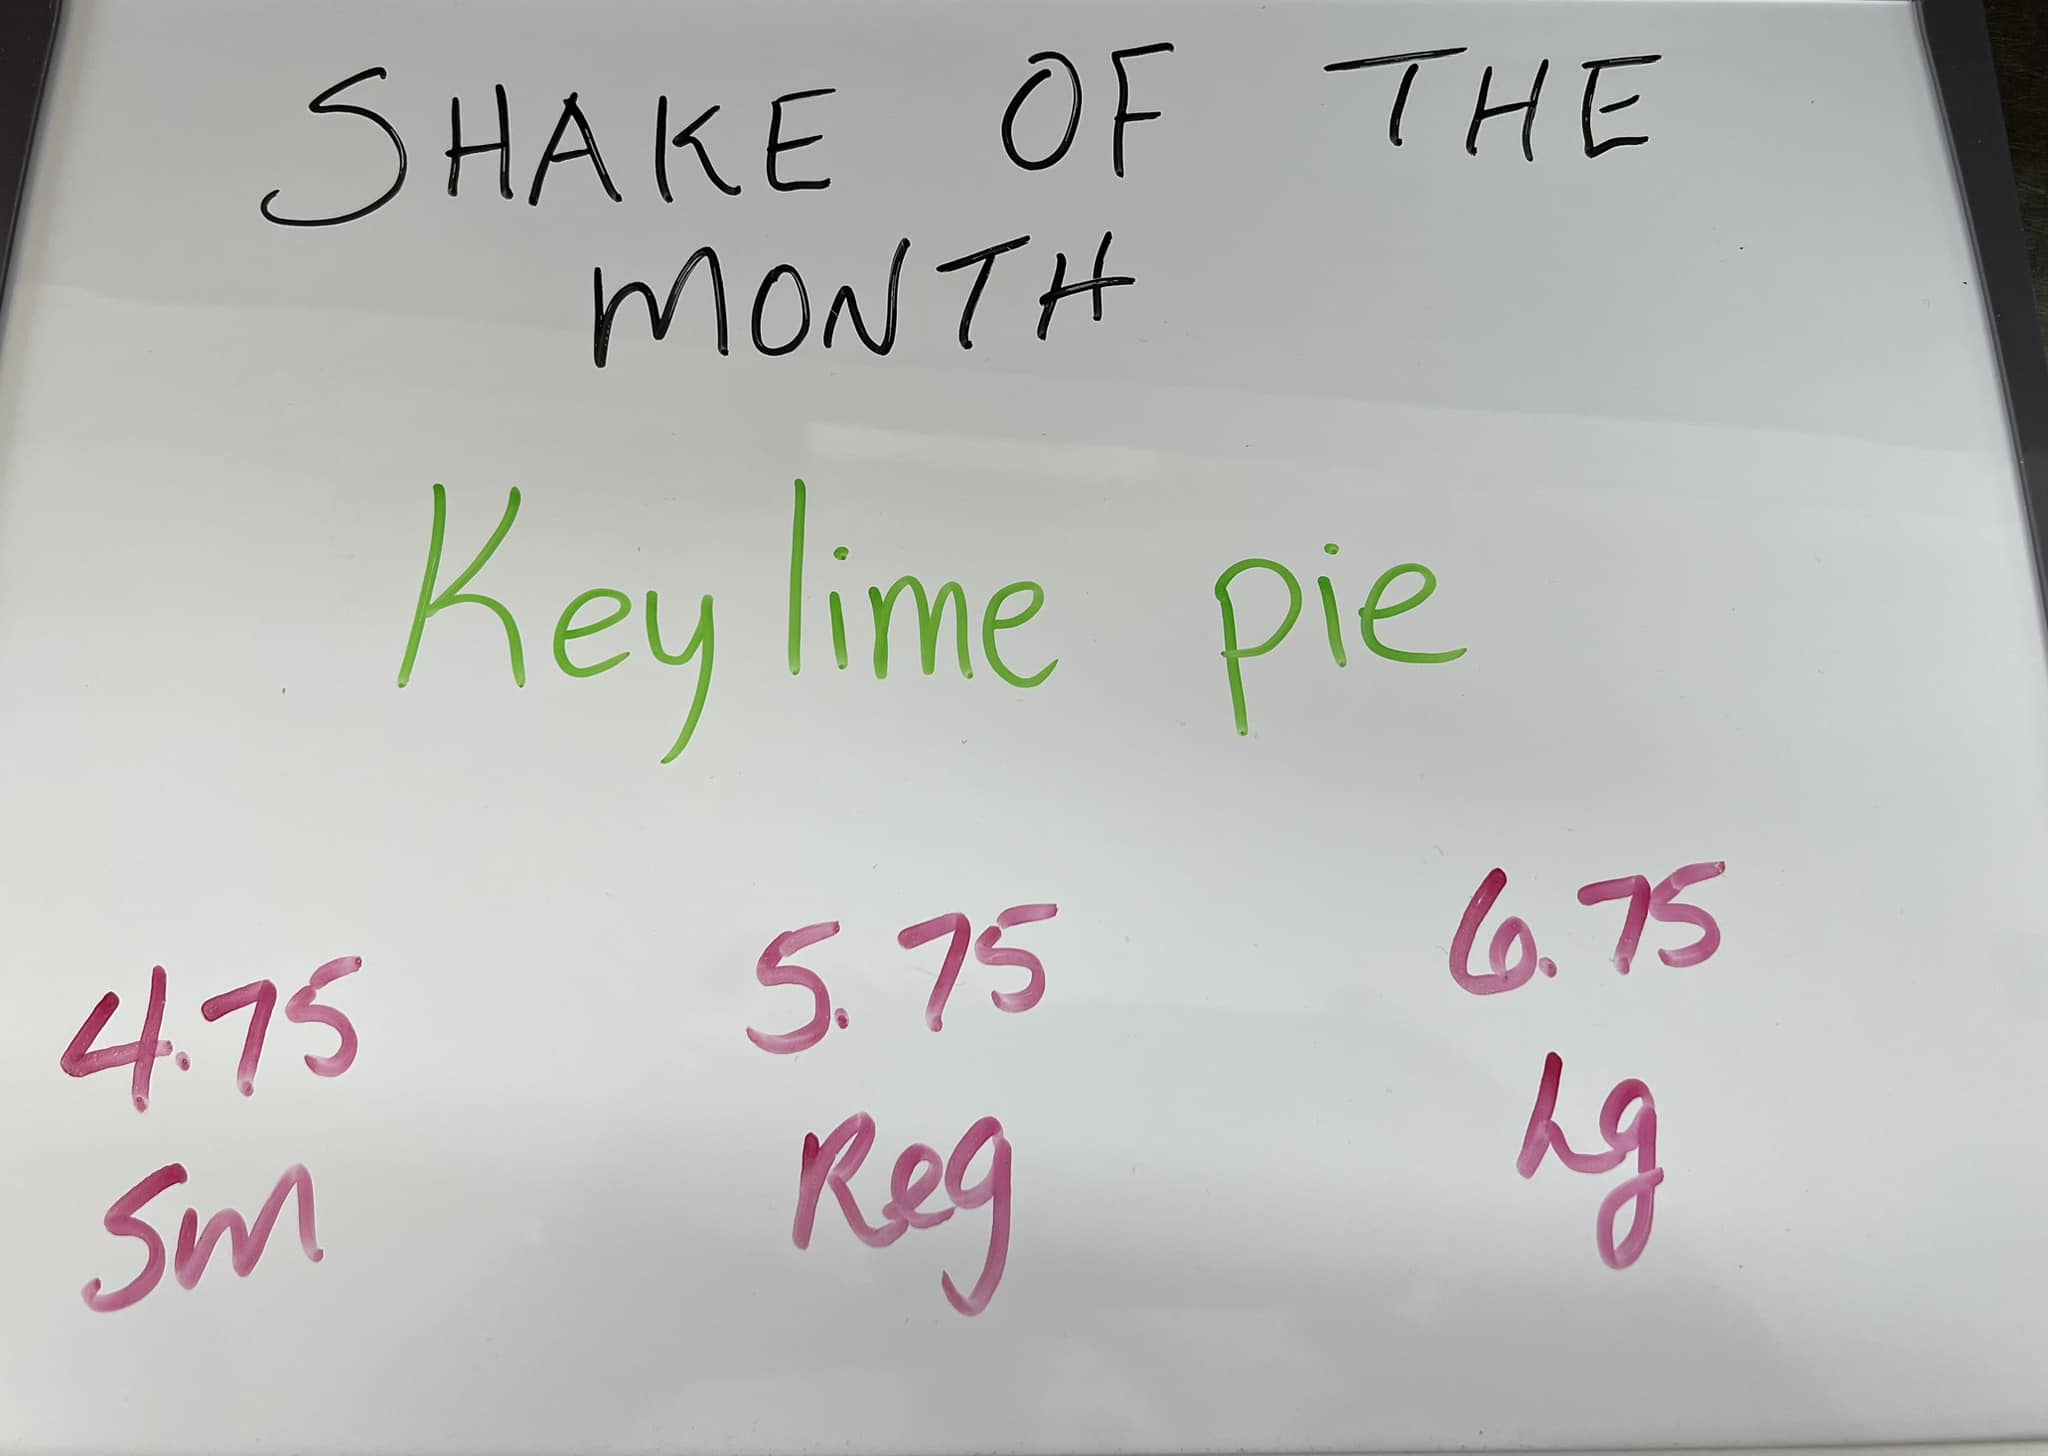 SHAKE OF THE
MONTH
Key lime pie
4.75 5.75 6.75
Sm Reg Lg